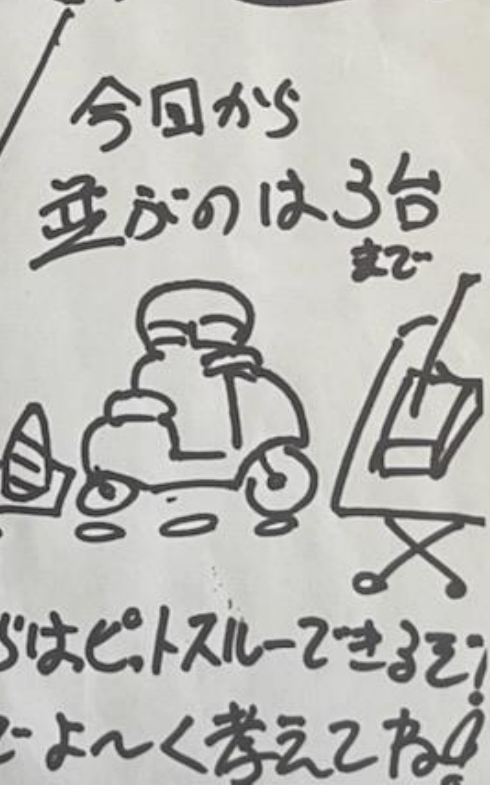 今回から
並ぶのは3台
まで
らはピットスルーできるぞ!
でよ〜く考えてね!